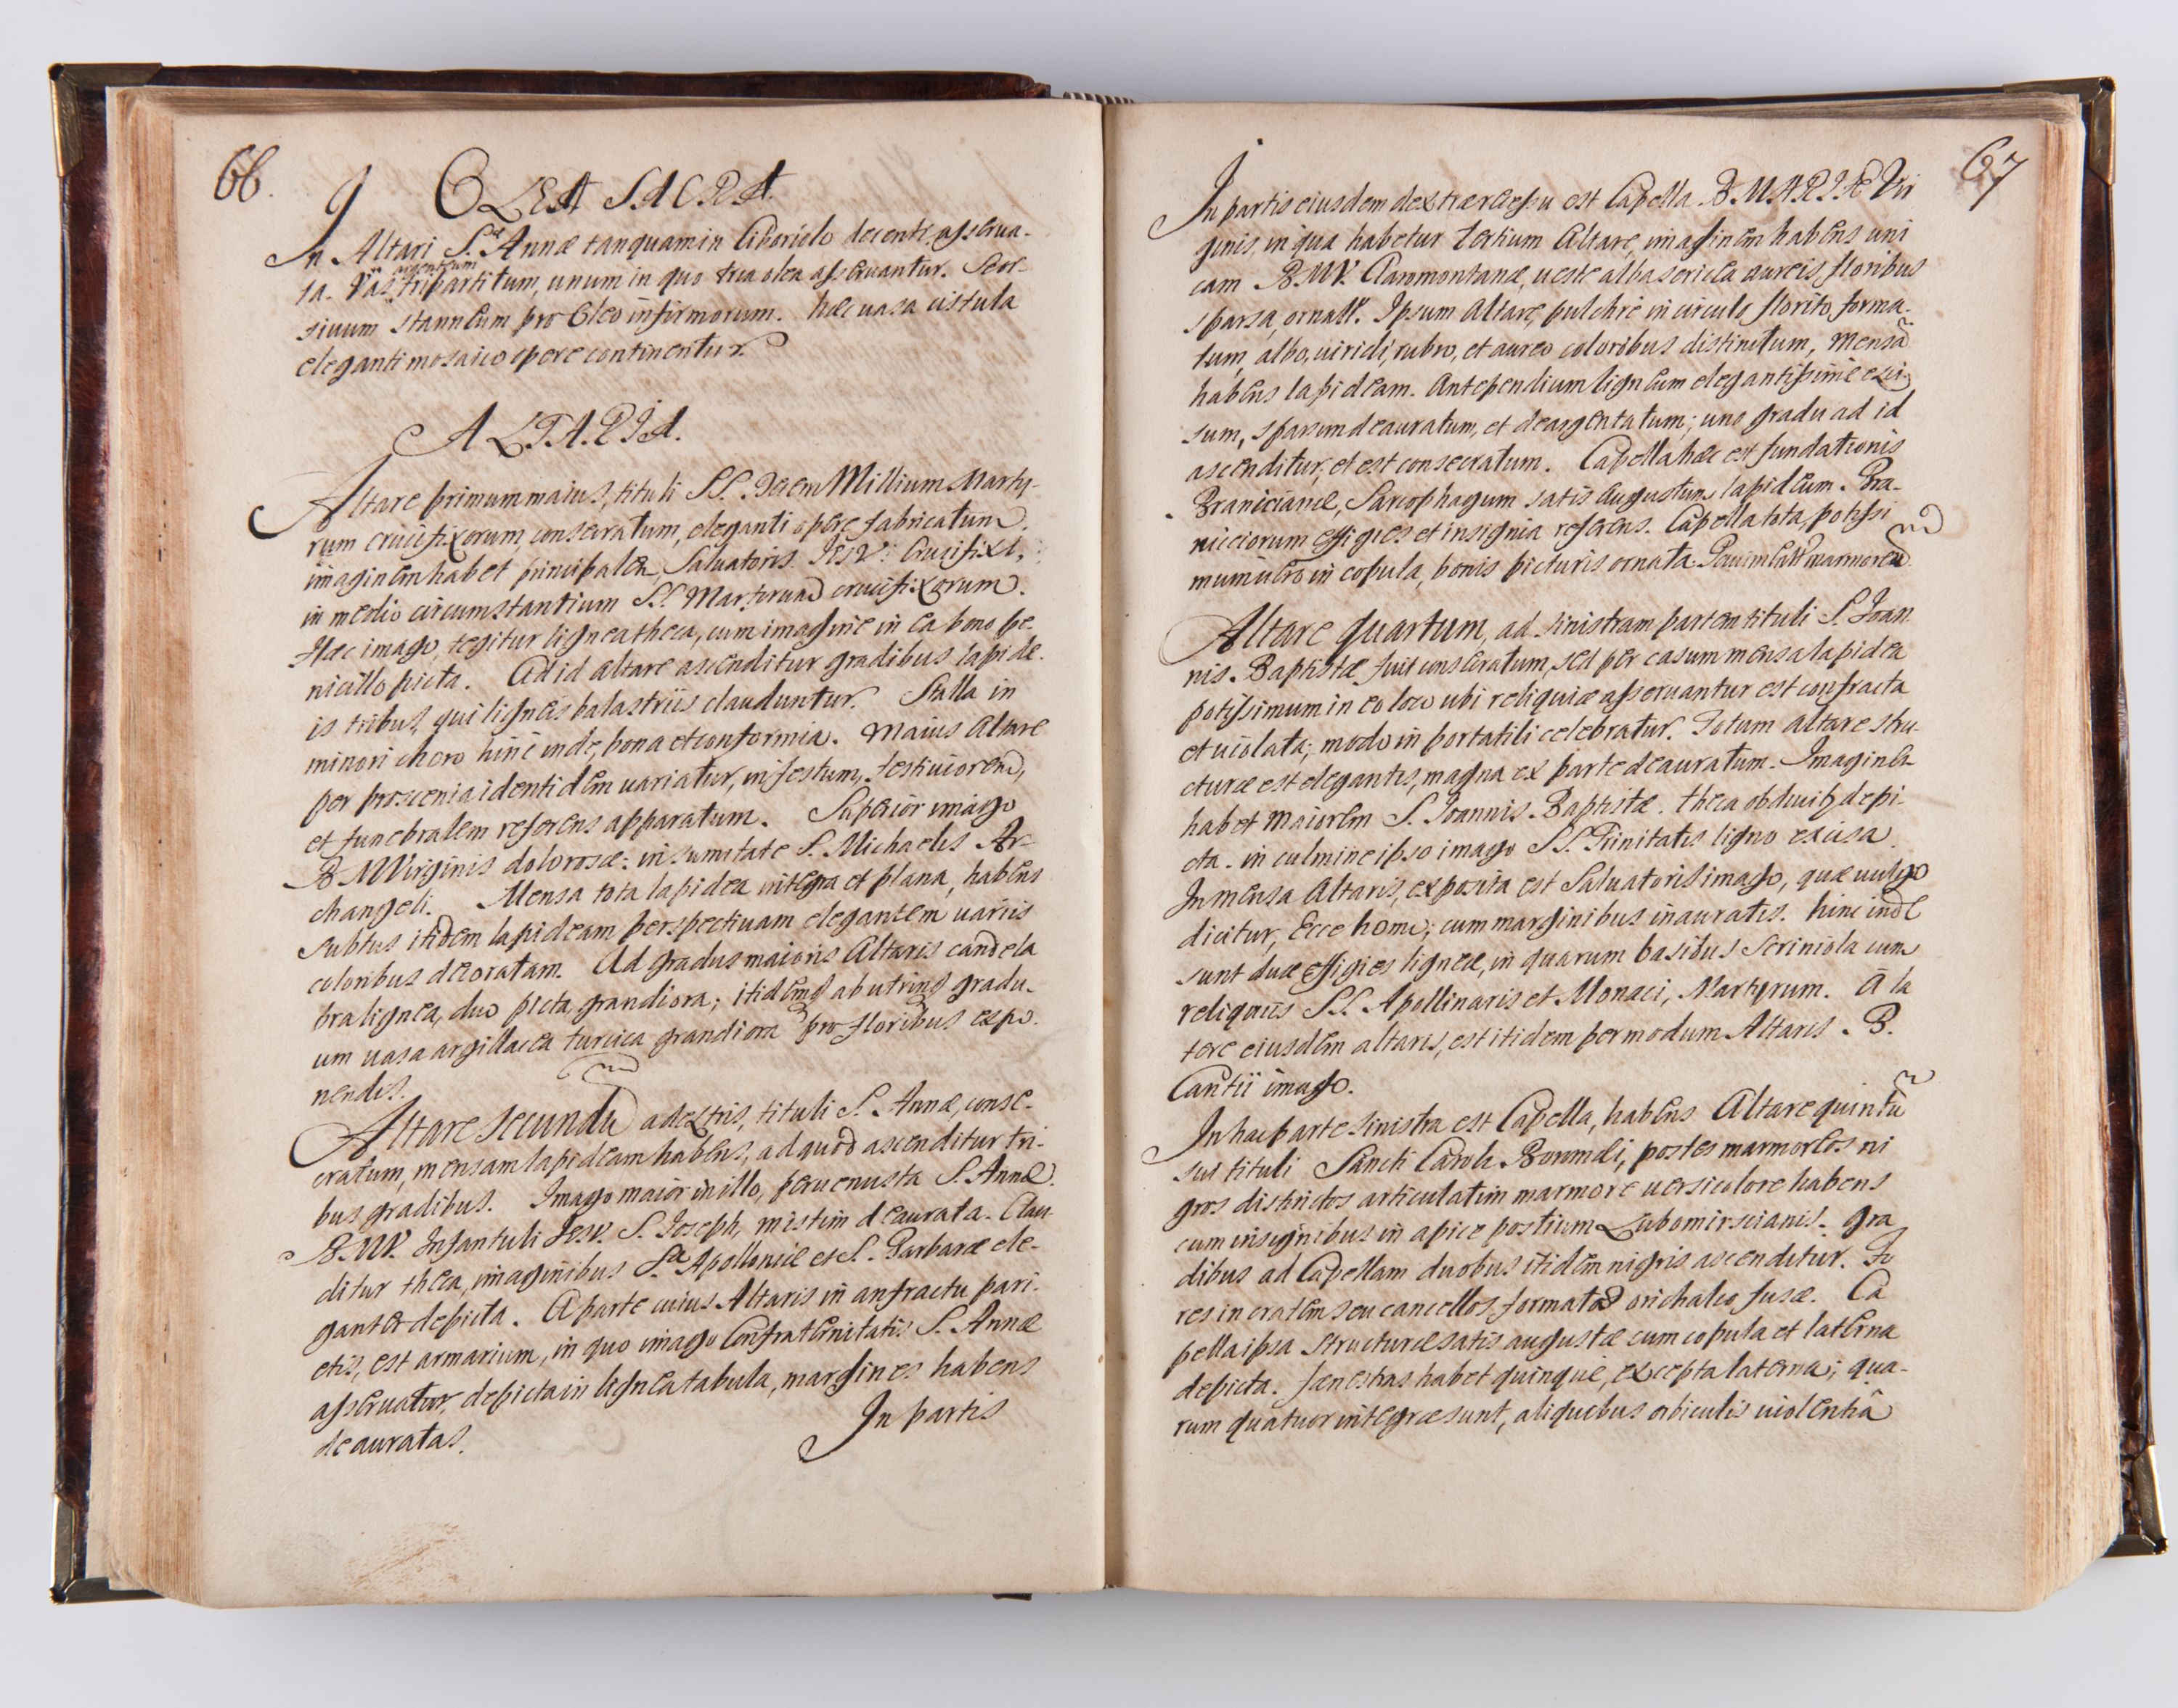 66.
OLEA SACRA.
In Altari S.æ Annæ tanquam in Ciboriolo decenti asserua-
ta. Vas argenteum tripartitum, unum in quo tria olea asseruantur. Seor-
siuum stanneum pro Oleo infirmorum. hæc uasa cistula
eleganti mosaico opere continentur.
ALTARIA.
Altare primum maius, tituli SS. Decem Millium Marty-
rum crucifixorum, consecratum, eleganti opere fabricatum.
imaginem habet principalem, Saluatoris IESV Crucifixi,
in medio circumstantium SS. Martirum crucifixorum.
Hæc imago, tegitur lignea theca, cum imagine in ea bono pe-
nicillo picta. Ad id altare ascenditur gradibus lapide-
is tribus, qui ligneis balastriis clauduntur. Stalla in
minori choro hinc inde, bona et conformia. Maius Altare
per proscenia identidem uariatur, in festum, festiuiorem,
et funebralem referens apparatum. Superior imago
B. M Virginis dolorosæ: in sumitate S. Michaelis Ar-
changeli. Mensa tota lapidea integra et plana, habens
subtus itidem lapideam perspectiuam elegantem uariis
coloribus decoratam. Ad gradus maioris Altaris candela
bra lignea, duo picta grandiora; itidemq ab utrinq gradu-
um uasa argillacea turcica grandiora pro floribus expo-
nendis.
Altare secundũ a dextris, tituli S. Annæ, conse-
cratum, mensam lapideam habens, ad quod ascenditur tri-
bus gradibus. Imago maior in illo, peruenusta S. Annæ.
B. MV. Infantuli Iesv. S. Ioseph, mistim deaurata. Clau-
ditur theca, imaginibus S.æ Apolloniæ et S. Barbaræ ele-
ganter depicta. A parte cuius Altaris in anfractu pari-
etis, est armarium, in quo imago Confraternitatis S. Annæ
asseruatur, depicta in lignea tabula, margines habens
deauratas.
In partis
67
In partis eiusdem dextræ recessu est Capella B. MARIÆ Vir
ginis, in qua habetur tertium Altare, imaginem habens uni
cam B. MV. Claromontanæ, ueste alba sericea aureis, floribus
sparsa, ornatã. Ipsum Altare, pulchre in circulo florito, forma-
tum, albo, uiridi, rubro, et aureo coloribus distinctum, mensã
habens lapideam. Antependium ligneum elegantissime exci-
sum, sparsim deauratum, et deargentatum; uno gradu ad id
ascenditur, et est consecratum. Capella hæc est fundationis
Branicianæ, Sarcophagum satis augustum lapideum. Bra-
nicciorum effigies et insignia referens. Capella tota, potissi
mum uero in copula, bonis picturis ornata. Pauimentũ marmoreũ.
Altare quartum, ad sinistram partem tituli S. Ioan
nis. Baptistæ fuit consecratum, sed per casum mensa lapidea
potissimum in eo loco ubi reliquiæ asseruantur est confracta
et uiolata; modo in portatili celebratur. Totum altare stru-
cturæ est elegantis, magna ex parte deauratum. Imaginem
habet maiorem S. Ioannis Baptistæ. theca obducitq depi-
cta. in culmine ipso imago SS. Trinitatis ligno excisa.
In mensa Altaris, exposita est Saluatoris imago, quæ uulgo
dicitur, Ecce homo; cum marginibus inauratis. hinc inde
sunt duæ effigies ligneæ, in quarum basibus scriniola cum
reliquiis SS. Apollinaris et Monaci, Martyrum. A la
tere eiusdem altaris, est itidem per modum Altaris B.
Cantii imago.
In hac parte sinistra est Capella, habens Altare quintũ
sui tituli Sancti Caroli Boromæi, postes marmoreos ni
gros distinctos articulatim marmore uersicolore habens
cum insignibus in apice postium Lubomirscianis. Gra
dibus ad Capellam duobus itidem nigris ascenditur. Fo
res in cratem seu cancellos formatæ orichalco fusæ. Ca
pella ipsa structuræ satis augustæ cum copula et laterna
depicta. fenestras habet quinque, excepta laterna; qua-
rum quatuor integræ sunt, aliquibus orbiculis uiolentiâ